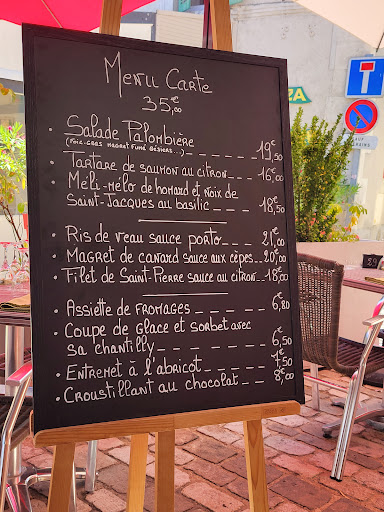 Menu Carte
35,00€
• Salade Palombière
(Foie-gras magret fumé gésiers...) _ _ _ _ 19€,50
• Tartare de saumon au citron _ _ _ 16€,00
• Méli-mélo de homard et noix de
Saint-Jacques au basilic _ _ _ 18€,50
• Ris de veau sauce porto _ _ _ 21€,00
• Magret de canard sauce aux cèpes _ _ 20€,00
• Filet de Saint-Pierre sauce au citron _ _ 18€,00
• Assiette de fromages _ _ _ _ _ 6€,80
• Coupe de glace et sorbet avec
sa chantilly _ _ _ _ _ _ 6€,50
• Entremet à l'abricot _ _ _ _ _ 7€,50
• Croustillant au chocolat _ _ _ 8€,00